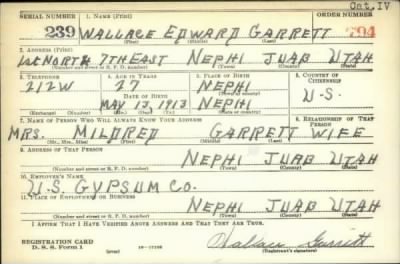 Cat. IV
SERIAL NUMBER 1. NAME (Print) ORDER NUMBER
239 WALLACE EDWARD GARRETT 794
(First) (Middle) (Last)
2. ADDRESS (Print)
1st NORTH 7TH EAST NEPHI JUAB UTAH
(Number and street or R. F. D. number) (Town) (County) (State)
3. TELEPHONE 4. AGE IN YEARS 5. PLACE OF BIRTH 6. COUNTRY OF CITIZENSHIP
212W 27 NEPHI U.S.
DATE OF BIRTH (Town or county)
MAY 13, 1913 NEPHI
(Exchange) (Number) (Mo.) (Day) (Yr.) (State or country)
7. NAME OF PERSON WHO WILL ALWAYS KNOW YOUR ADDRESS 8. RELATIONSHIP OF THAT PERSON
MRS. MILDRED GARRETT WIFE
(Mr., Mrs., Miss) (First) (Middle) (Last)
9. ADDRESS OF THAT PERSON
NEPHI JUAB UTAH
(Number and street or R. F. D. number) (Town) (County) (State)
10. EMPLOYER'S NAME
U.S. GYPSUM CO.
11. PLACE OF EMPLOYMENT OR BUSINESS
NEPHI JUAB UTAH
(Number and street or R. F. D. number) (Town) (County) (State)
I AFFIRM THAT I HAVE VERIFIED ABOVE ANSWERS AND THAT THEY ARE TRUE.
REGISTRATION CARD
D. S. S. Form 1 (over) 16-17105 Wallace Garrett
(Registrant's signature)